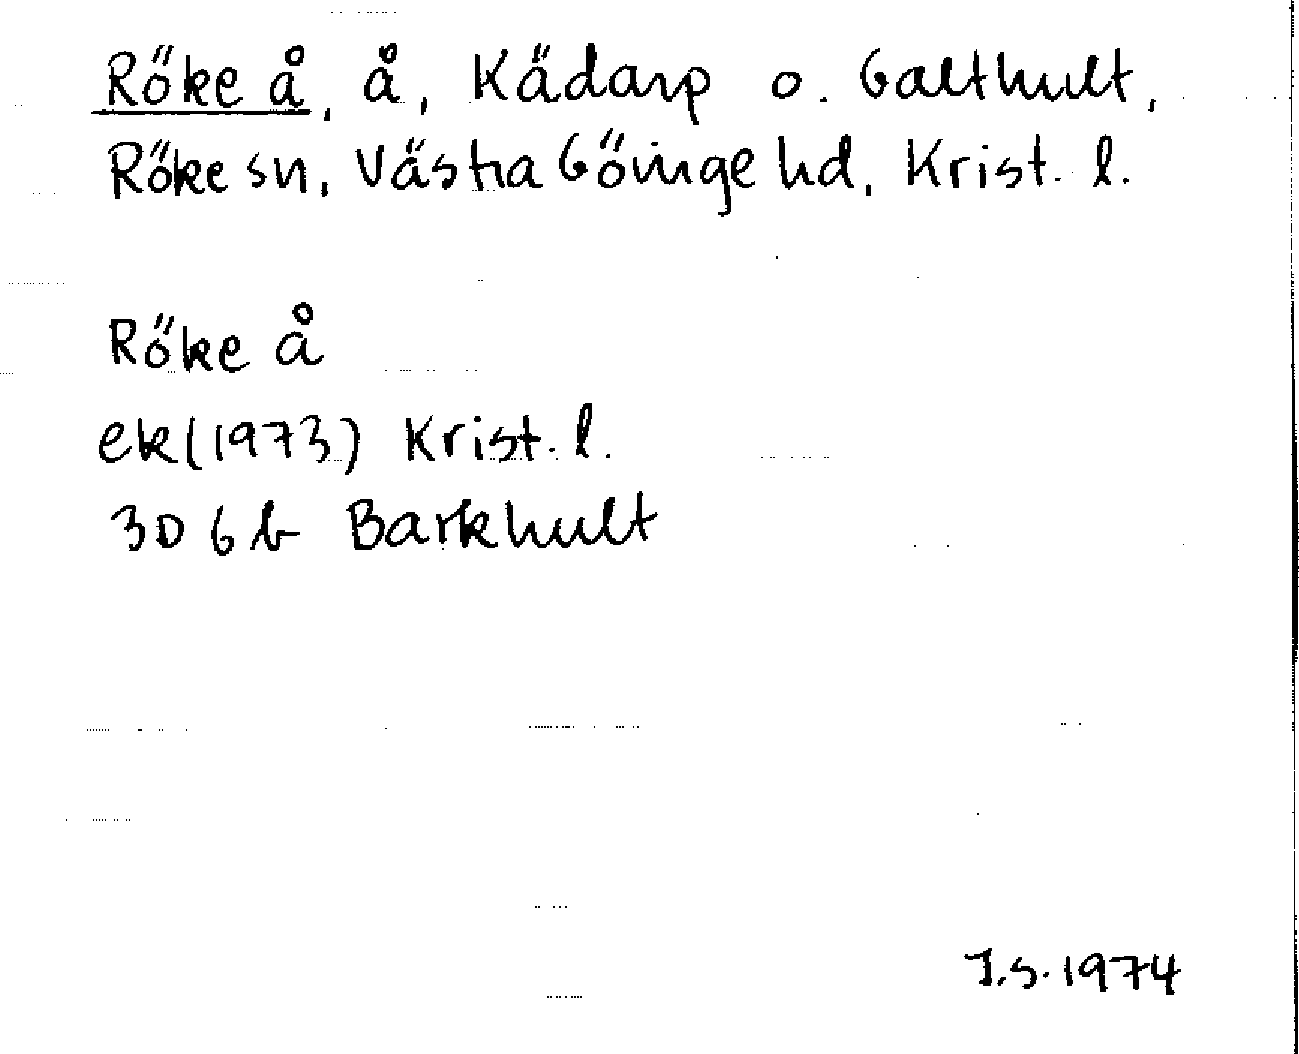 Röke å, å, Kädarp o. Galthult,
Röke sn, Västra Göinge hd, Krist. l.
Röke å
ek(1973) Krist. l.
3D 6b Barkhult
I.S. 1974